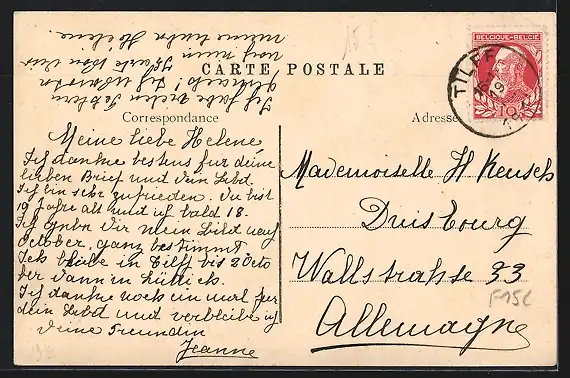 CARTE POSTALE
Correspondance
Meine liebe Helene,
Ich danke bestens fur deine
lieben Brief und dein Bild.
Ich bin sehr zufrieden. Du bist
19 Jahre alt und ich bald 18.
Ich gebe dir mein Bild nach
October, ganz bestimmt
Ich bleibe in Tilff bis 2 Octo
ber dann in Lüttich.
Ich danke noch ein mal fur
dein Bild und verbleibe ich
deine Freundin
Jeanne
Ich habe vielen
Ich
Karte von dir
noch nein
meine liebe Helene.
BELGIQUE·BELGIË
10
TILFF
19
Adresse
Mademoiselle H Keusch
Duisbourg
Wallstrahse 33
Allemagne
F15L